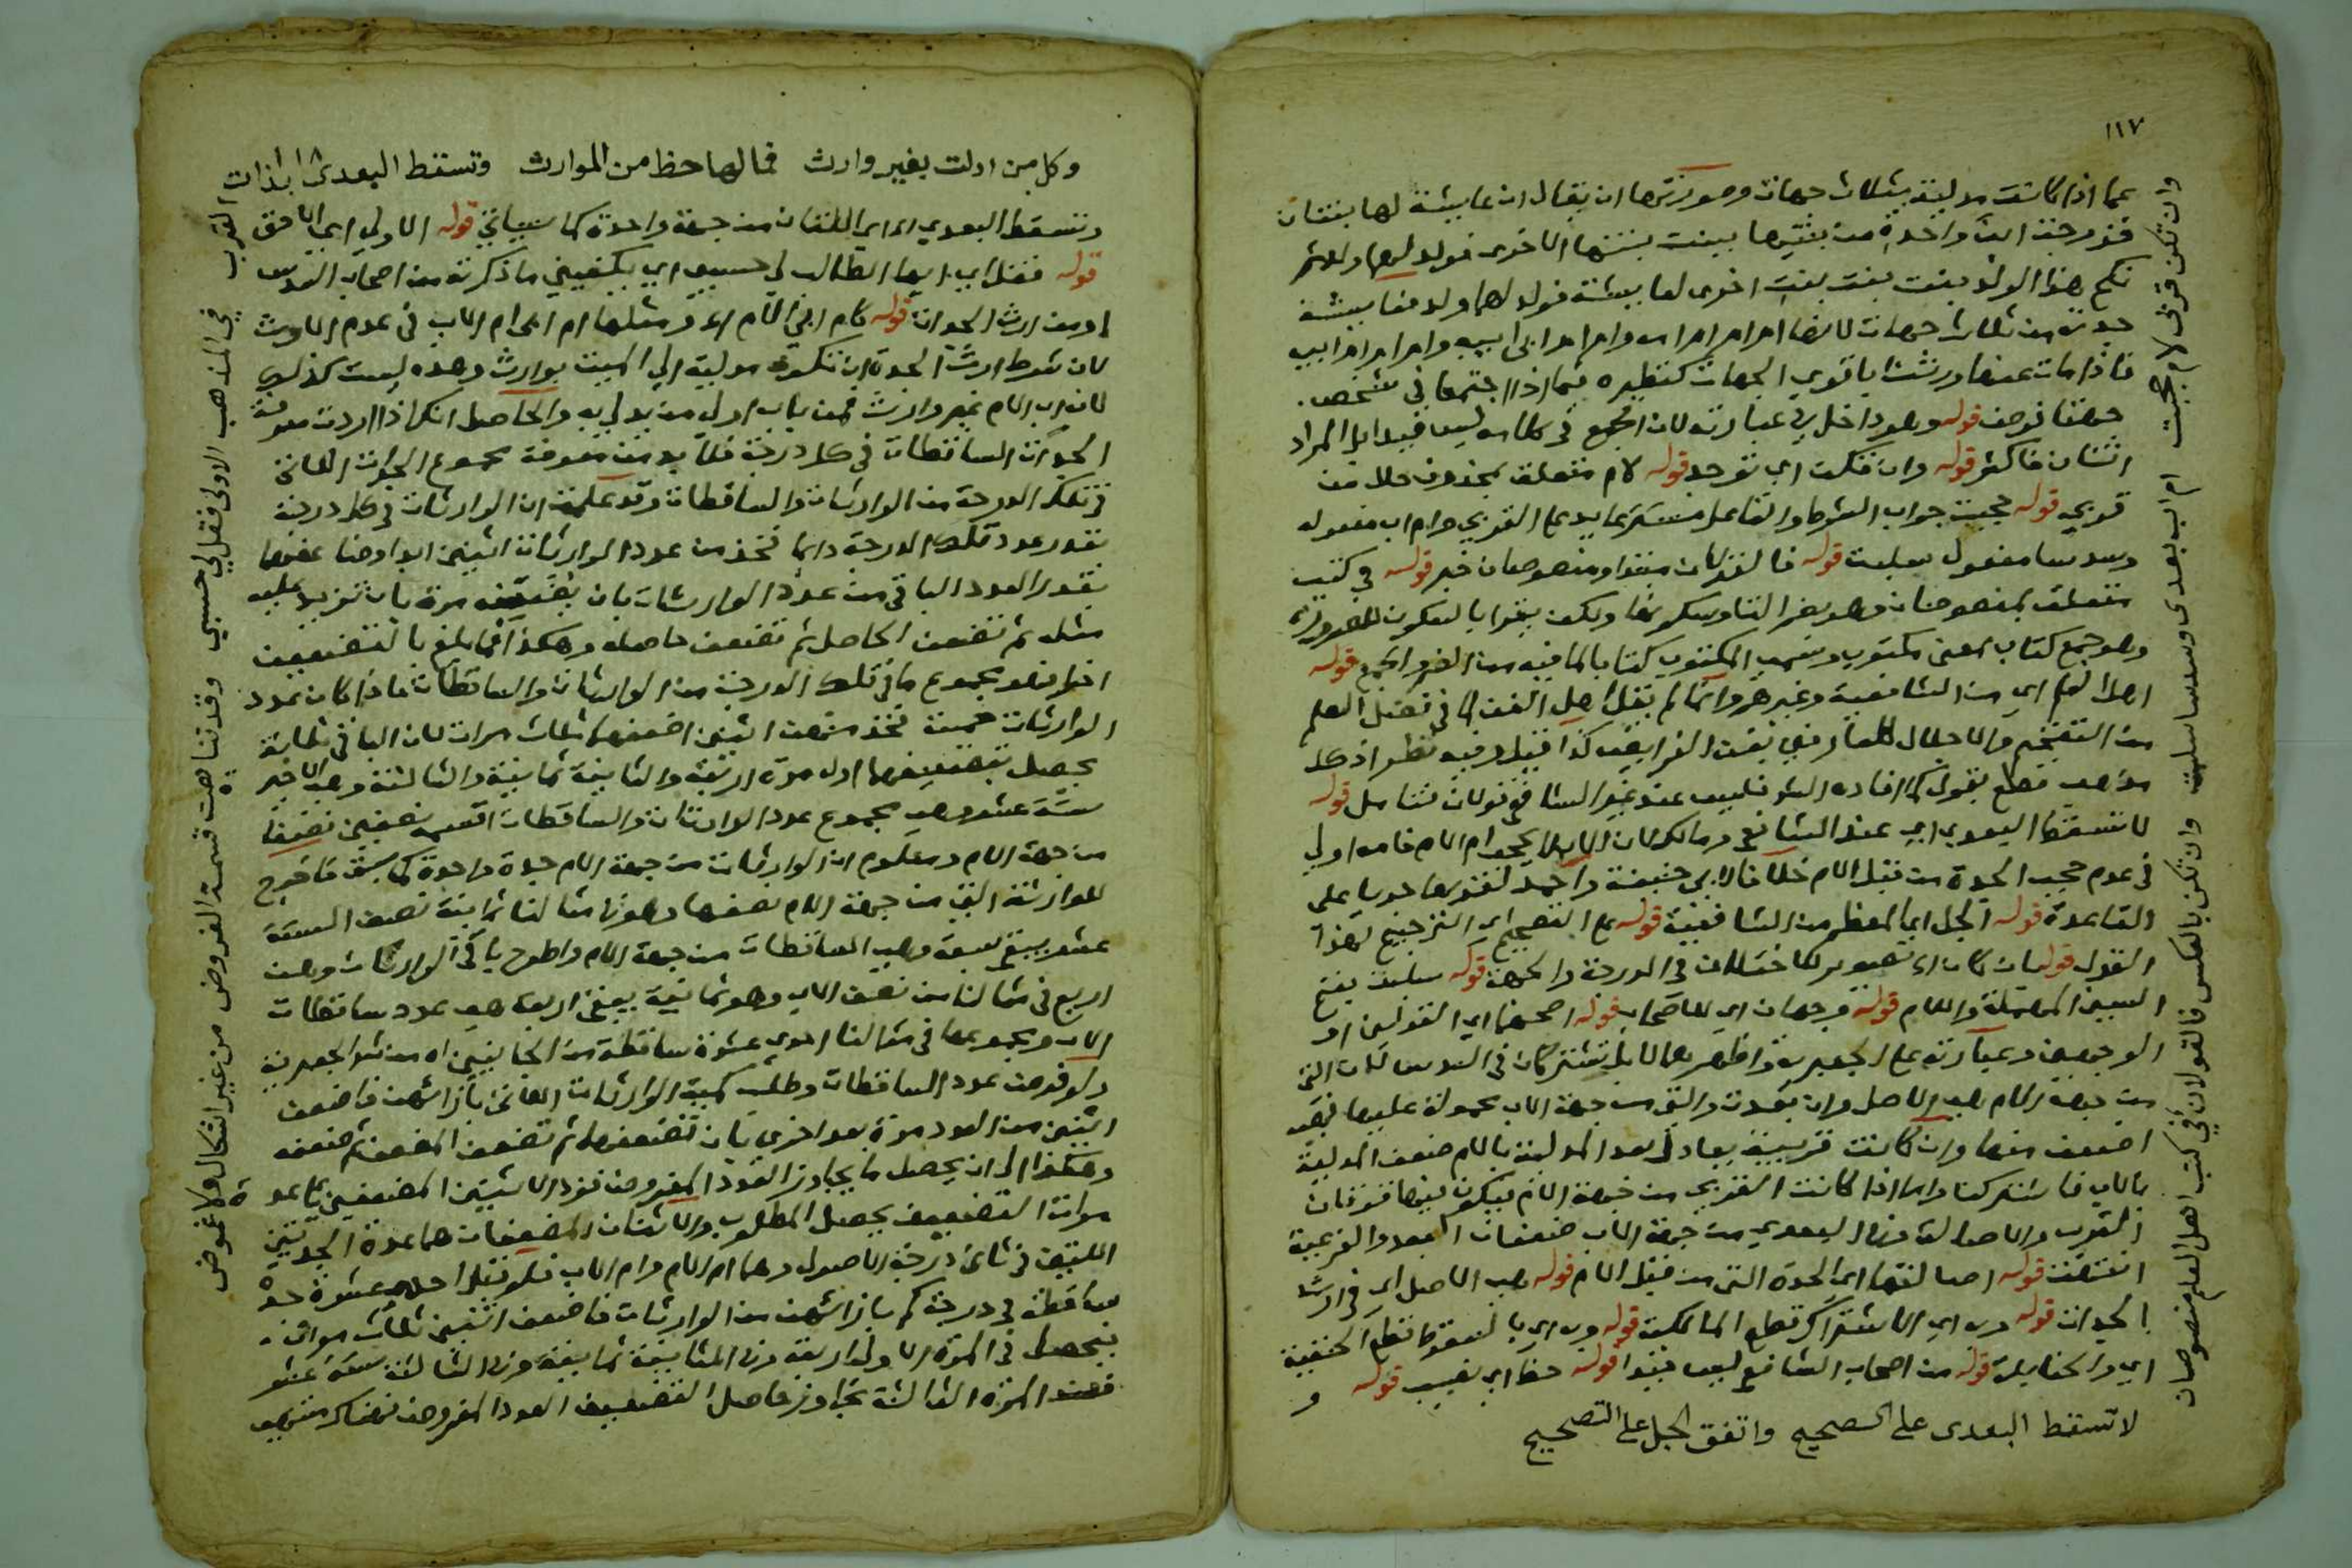 ١١٧
عما اذا كانت مدلية بثلاث جهات وصورتها ان يقال ان عايشة لها بنتان
نكح هذا الولد بنت بنت بنت اخرى لعايشة فولد لهما ولد فعايشة
جدته من ثلاث جهات لانها ام ام ام امه وام ام ام ابي ابيه وام ام ام ابيه
فاذا مات عنها ورثت باقوى الجهات كنظيره فيما اذا اجتمعا في شخص
جهتا فرض قوله وهو داخل في عبارته لان الجمع في كلامه ليس قيدا بل المراد
اثنان فاكثر قوله وان تكن اي توجد قوله لام متعلق بمحذوف حال من
قربى قوله حجبت جواب الشرط والفاعل مستتر عايد على القربى وام اب مفعوله
وسدسا مفعول سلبت قوله فالقولان مبتدا ومنصوصان خبر قوله في كتب
متعلق بمنصوصان وهو بضم التا وسكونها ولكن يقرا بالسكون للضرورة
وهو جمع كتاب بمعنى مكتوب وسمي المكتوب كتابا لما فيه من الضم والجمع قوله
اهل العلم اي من الشافعية وغيرهم وانما لم يقل اهل الفن لما في لفظ العلم
من التفخيم والاجلال
لا تسقط البعدى اي عند الشافعي ومالك لان الاب لا يحجب ام الام فامه اولى
في عدم حجب الجدة من قبل الام خلافا لابي حنيفة واحمد
القاعدة قوله الجل اي المعظم من الشافعية قوله على التصحيح اي الترجيح لهذا
السين المهملة واللام قوله وجهان اي للاصحاب قوله اصحهما اي القولين او
من جهة الام هي الاصل وان بعدت والتي من جهة الاب محمولة عليها فهي
اضعف منها وان كانت قريبة يعادل بعد المدلية بالام ضعف المدلية
بالاب فاشتركتا واما اذا كانت القربى من جهة الام فيكون فيها قوتان
القرب والاصالة وفي البعدى من جهة الاب ضعفان البعد والفرعية
انتهت قوله اصالتها اي الجدة التي من قبل الام قوله هي الاصل اي في ارث
الجدات قوله وبه اي الاشتراك قطع المالكية قوله وبه اي بالسقوط قطع الحنفية
اي والحنابلة قوله من اصحاب الشافعي ليس قيدا قوله حظ اي نصيب قوله و
لا تسقط البعدى على الصحيح واتفق الجل على التصحيح
وان تكن قربى لام حجبت ام اب بعدى وسدسا سلبت وان تكن بالعكس فالقولان في كتب اهل العلم منصوصان
وكل من ادلت بغير وارث فما لها حظ من الموارث وتسقط البعدى بذات القرب
وتسقط البعدى اي اللتان من جهة واحدة كما سيأتي قوله الاولى اي الاحق
قوله فقل اي ايها الطالب لي حسبي اي يكفيني ما ذكرته من اصحاب السدس
او من ارث الجدات قوله كام ابي الام اي ومثلها ام ابي ام الاب في عدم الارث
لان شرط ارث الجدة ان تكون مدلية الى الميت بوارث وهذه ليست كذلك
لان اب الام غير وارث فمن باب اولى من يدلي به والحاصل انك اذا اردت معرفة
الجدات الساقطات في كل درجة فلا بد من معرفة مجموع الجدات اللاتي
في تلك الدرجة من الوارثات والساقطات وقد علمت ان الوارثات في كل درجة
بقدر عدد تلك الدرجة دايما فخذ من عدد الوارثات اثنين ابدا وضاعفهما
بقدر العدد الباقي من عدد الوارثات بان تضعفه مرة بان تزيد عليه
مثله ثم تضعف الحاصل ثم تضعف حاصله وهكذا فما بلغ بالتضعيف
اخرا فهو مجموع ما في تلك الدرجة من الوارثات والساقطات فاذا كان عدد
الوارثات خمسة فخذ منهن اثنين اضعفهما ثلاث مرات لان الباقي ثلاثة
يحصل بتضعيفهما اول مرة اربعة والثانية ثمانية والثالثة وهي الاخير
ستة عشر وهي مجموع عدد الوارثات والساقطات اقسمه نصفين نصفا
من جهة الام ومعلوم ان الوارثات من جهة الام جدة واحدة كما سبق فاخرج
للوارثة التي من جهة الام نصفها وهو في مثالنا ثمانية نصف الستة
عشر يبقى سبعة وهي الساقطات من جهة الام واطرح باقي الوارثات وهن
اربع في مثالنا من نصف الاب وهو ثمانية يبقى اربعة هي عدد ساقطات
الاب ومجموعها في مثالنا احدى عشرة ساقطة من الجانبين اه من شرح الجعبرية
ولو فرض عدد الساقطات وطلب كمية الوارثات اللاتي بازائهن فاضعف
اثنين من العدد مرة بعد اخرى بان تضعفهما ثم تضعف المضعف ثم ضعفه
وهكذا الى ان يحصل ما يجاوز العدد المفروض فزد الاثنين المضعفين على عدة
مرات التضعيف يحصل المطلوب والاثنان المضعفان هما عدة الجدتين
اللتين في ثاني درجة الاصول وهما ام الام وام الاب فلو قيل احدى عشرة جدة
ساقطة في درجة كم بازائهن من الوارثات فاضعف اثنين ثلاث مرات
فيحصل في المرة الاولى اربعة وفي الثانية ثمانية وفي الثالثة ستة عشر
فعند المرة الثالثة تجاوز حاصل التضعيف العدد المفروض فهناك منتهى
في المذهب الاولى فقل لي حسبي وقد تناهت قسمة الفروض من غير اشكال ولا غموض